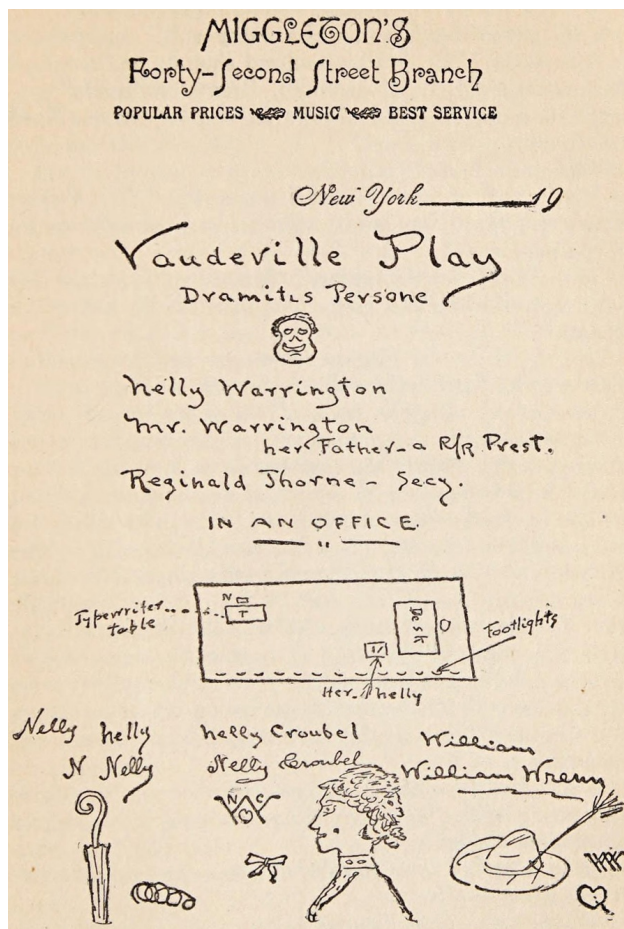 MIGGLETON'S
Forty-Second Street Branch
POPULAR PRICES MUSIC BEST SERVICE
New York 19
Vaudeville Play
Dramitis Persone
Nelly Warrington
Mr. Warrington
her Father - a R/R Prest.
Reginald Thorne - Secy.
IN AN OFFICE
"
Typewriter
table
N
T
Desk
Footlights
Her Nelly
Nelly Nelly
N Nelly
Nelly Croubel
Nelly Croubel
William
William Wrenn
N C
W